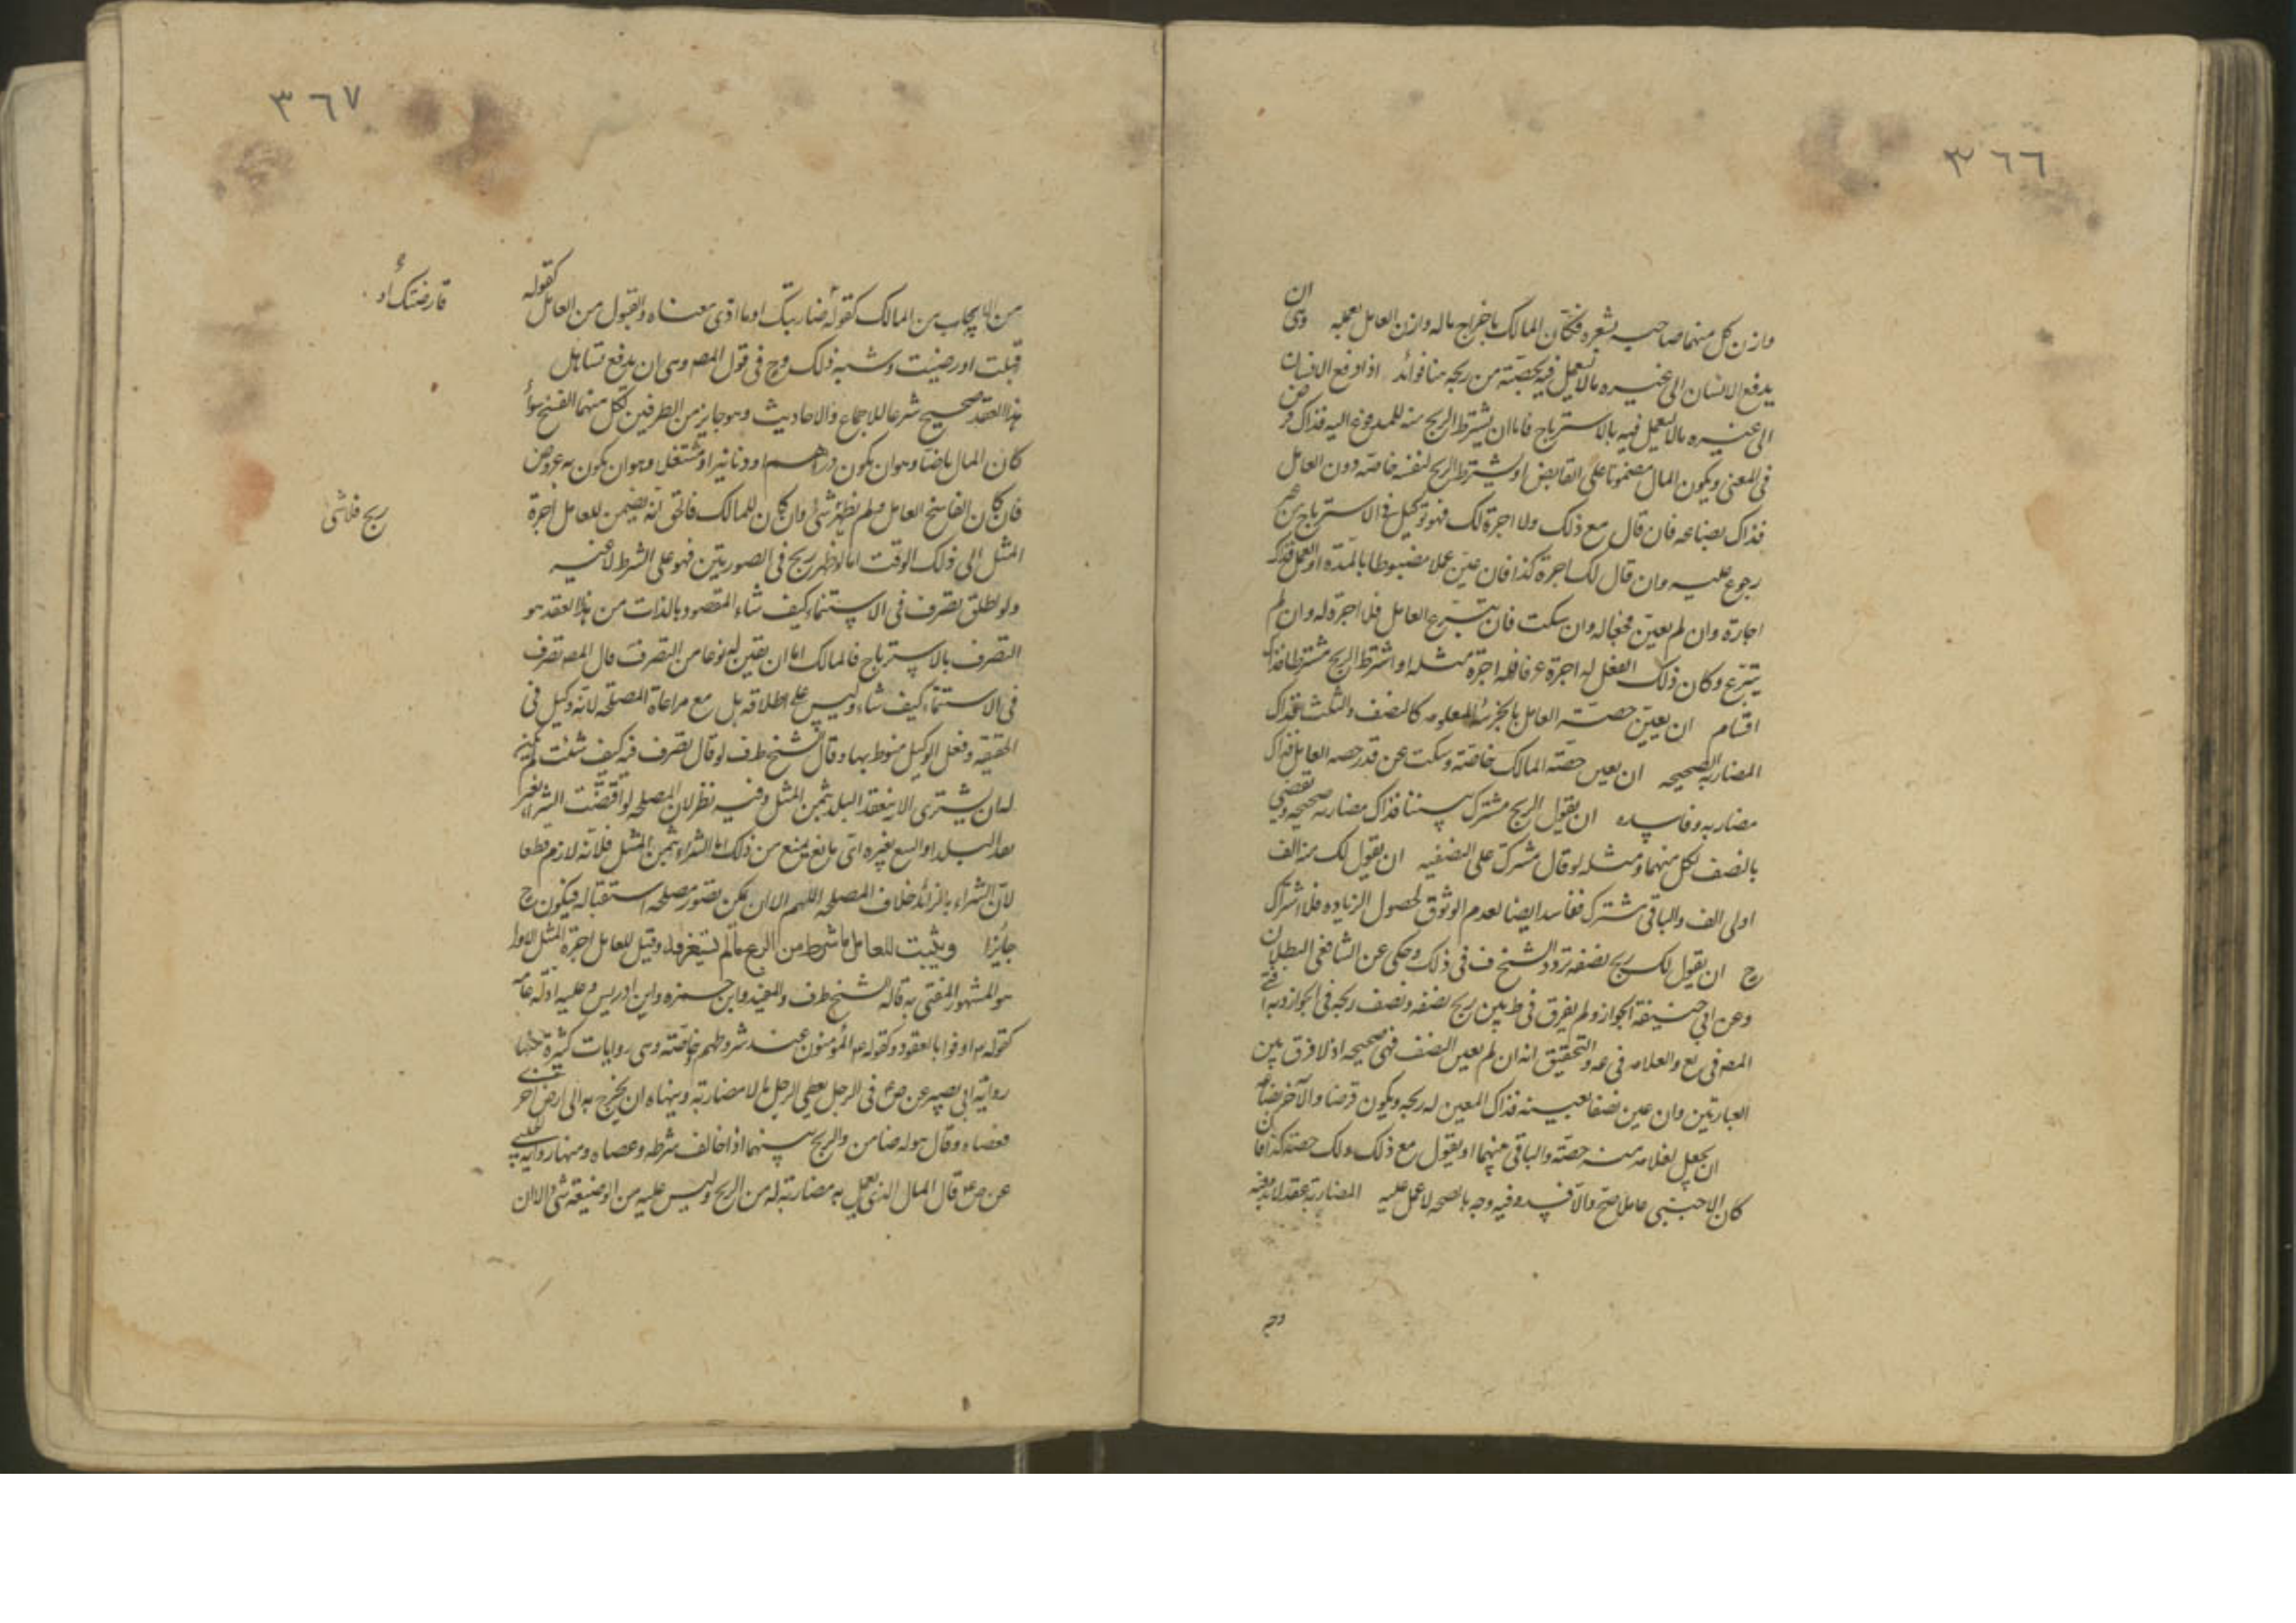 ٣٦٦
وازن كل منهما صاحبه بشعره فكان المالك باخراج ماله وازن العامل بعمله وهى ان
يدفع الانسان الى غيره مالا ليعمل فيه بحصّته من ربحه هنا فوائد اذا دفع الانسان
الى غيره مالا ليعمل فيه بالاسترباح فاما ان يشترط الربح منه للمدفوع اليه فذاك قرض
فى المعنى ويكون المال مضمونا على القابض او يشترط الربح لنفسه خاصّه دون العامل
فذاك بضاعه فان قال مع ذلك ولا اجرة لك فهو توكيل فى الاسترباح من غير
رجوع عليه وان قال لك اجرة كذا فان عيّن عملا مضبوطا بالمدّة او العمل فذاك
اجارة وان لم يعيّن فجعاله وان سكت فان تبرّع العامل فلا اجرة له وان لم
يتبرّع وكان ذلك الفعل له اجرة عرفا فله اجرة مثله او اشترط الربح مشتركا فهنا
اقسام ان يعيّن حصّة العامل بالجزء المعلوم كالنصف والثلث فذاك
المضاربة الصحيحه ان يعين حصّة المالك خاصّة وسكت عن قدر حصه العامل فذاك
مضاربه وفاسده ان يقول الربح مشترك بيننا فذاك مضاربه صحيحه ويقضى
بالنصف لكل منهما ومثله لو قال مشترك على النصفيه ان يقول لك منه الف
اولى الف والباقى مشترك ففاسد ايضا لعدم الوثوق لحصول الزياده فلا اشتراك
ح ان يقول لك ربح نصفه تردد الشيخ ف فى ذلك وحكى عن الشافعى البطلان
وعن ابى حنيفة الجواز ولم يفرق فى ط بين ربح نصفه ونصف ربحه فى الجواز وبه افتى
المصه فى يع والعلامه فى عد والتحقيق انه ان لم يعين النصف فهى صحيحه اذ لا فرق بين
العبارتين وان عين نصفا بعينه فذاك المعين له ربحه ويكون قرضا والآخر بضاعه
ان يجعل لغلامه منه حصّة والباقى بينهما او يقول مع ذلك ولك حصّة كذا فان
كان الاجنبى عاملا صحّ والا فسد وفيه وجه بالصحه لا عمل عليه المضاربة عقد لابد فيه
٣٦٧
من الايجاب من المالك كقوله ضاربتك او ما ادّى معناه والقبول من العامل كقوله
قارضتك او
قبلت او رضيت وشبه ذلك وح فى قول المصه وهى ان يدفع تساهل
هذا العقد صحيح شرعا للاجماع والاحاديث وهو جايز من الطرفين لكل منهما الفسخ سواء
كان المال ناضّا وهو ان يكون دراهم او دنانير او مشتغل وهو ان يكون به عروض
فان كان الفاسخ العامل ولم يظهر شئ وان كان للمالك فالحق انه يضمن للعامل اجرة
ربح فلا شى
المثل الى ذلك الوقت اما لو ظهر ربح فى الصورتين فهو على الشرط لا غيره
ولو اطلق تصرف فى الاستنماء كيف شاء المقصود بالذات من هذا العقد هو
التصرف بالاسترباح فالمالك اما ان يعين له نوعا من التصرف قال المصه تصرف
فى الاستنماء كيف شاء وليس على اطلاقه بل مع مراعاة المصلحه لانه وكيل فى
الحقيقه وفعل الوكيل منوط بها وقال الشيخ ط ف لو قال تصرف فيه كيف شئت لم يكن
له ان يشترى الا بنقد البلد بثمن المثل وفيه نظر لان المصلحه لو اقتضت الشراء بغير
نقد البلد او البيع بغيره اى مانع يمنع من ذلك اما الشراء بثمن المثل فلانه لازم قطعا
لان الشراء بالزائد خلاف المصلحه اللهم الا ان يكن تصور مصلحه استقباله فيكون ح
جايزا ويثبت للعامل ما شرط من الربح مالم يستغرقه وقيل للعامل اجرة المثل الاول
هو المشهور المفتى به قاله الشيخ ط ف والمفيد وابن حمزه وابن ادريس وعليه ادلّه عامّه
كقوله تع اوفوا بالعقود وكقوله ع المؤمنون عند شروطهم وخاصّة وهى روايات كثيرة منها
رواية ابى بصير عن ص ع فى الرجل يعطى الرجل مالا مضاربة وينهاه ان يخرج به الى ارض اخرى
فعصاه وقال هو له ضامن والربح بينهما اذا خالف شرطه وعصاه ومنها رواية الحلبى
عن ص ع قال المال الذى يعمل به مضاربة له من الربح وليس عليه من الوضيعة شى الا ان